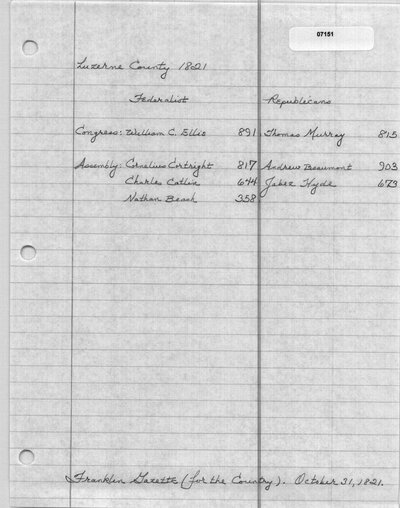 07151
Luzerne County 1821
Federalist Republicans
Congress: William C. Ellis 891 Thomas Murray 815
Assembly: Cornelius Cortright 817 Andrew Beaumont 903
Charles Catlin 644 Jabez Hyde 673
Nathan Beach 358
Franklin Gazette (for the Country). October 31, 1821.